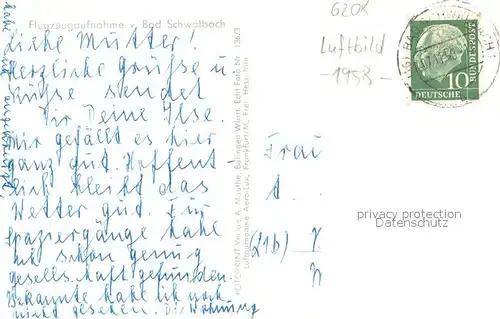 Flugzeugaufnahme v. Bad Schwalbach
Liebe Mutter!
Herzliche Grüsse u
Küsse sendet
Dir Deine Ilse.
Mir gefällt es hier
ganz gut. Hoffent
lich bleibt das
Wetter gut. Für
Spaziergänge habe
ich schon genug
Gesellschaft gefunden.
Bekannte habe ich noch
nicht gesehen. Die Wohnung
FOTOPRINT Verlag A. Mauthe, Balingen Württ. Echt Foto Nr. 136/3
Luftbildaufnahme Aero-Lux, Frankfurt/M., Frei. Hess. Min.
6208
Luftbild
-1958-
10
DEUTSCHE
BUNDESPOST
Frau
(21b)
privacy protection
Datenschutz